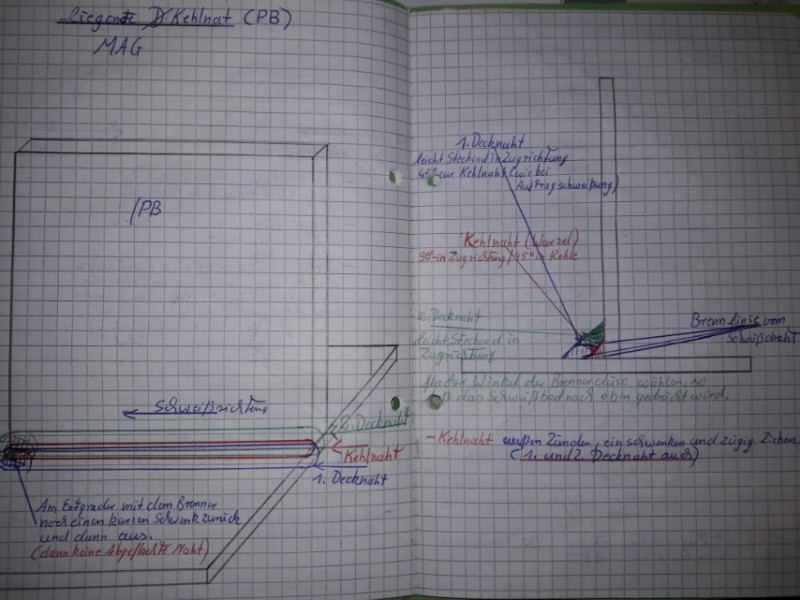 liegende Kehlnat (PB)
MAG
PB
Schweißrichtung
2. Decknaht
Kehlnaht
1. Decknaht
Am Entgrader mit dem Brenner
noch einen kurzen Schwenk zurück
und dann aus.
(dann keine Abgeflachte Naht)
1. Decknaht
leicht Stechend in Zugrichtung
45° zur Kehlnaht (wie bei
Auftragschweißung)
Kehlnaht (Wurzel)
90° in Zugrichtung / 45° in Kehle
2. Decknaht
leicht Stechend in
Zugrichtung
Brennlinie vom
Schweißdraht
flacher Winkel der Brennerdüse wählen, so
das Schweißbad nach oben gedrückt wird.
- Kehlnaht Zünden, einschwenken und zügig Ziehen.
(1. und 2. Decknaht auch)